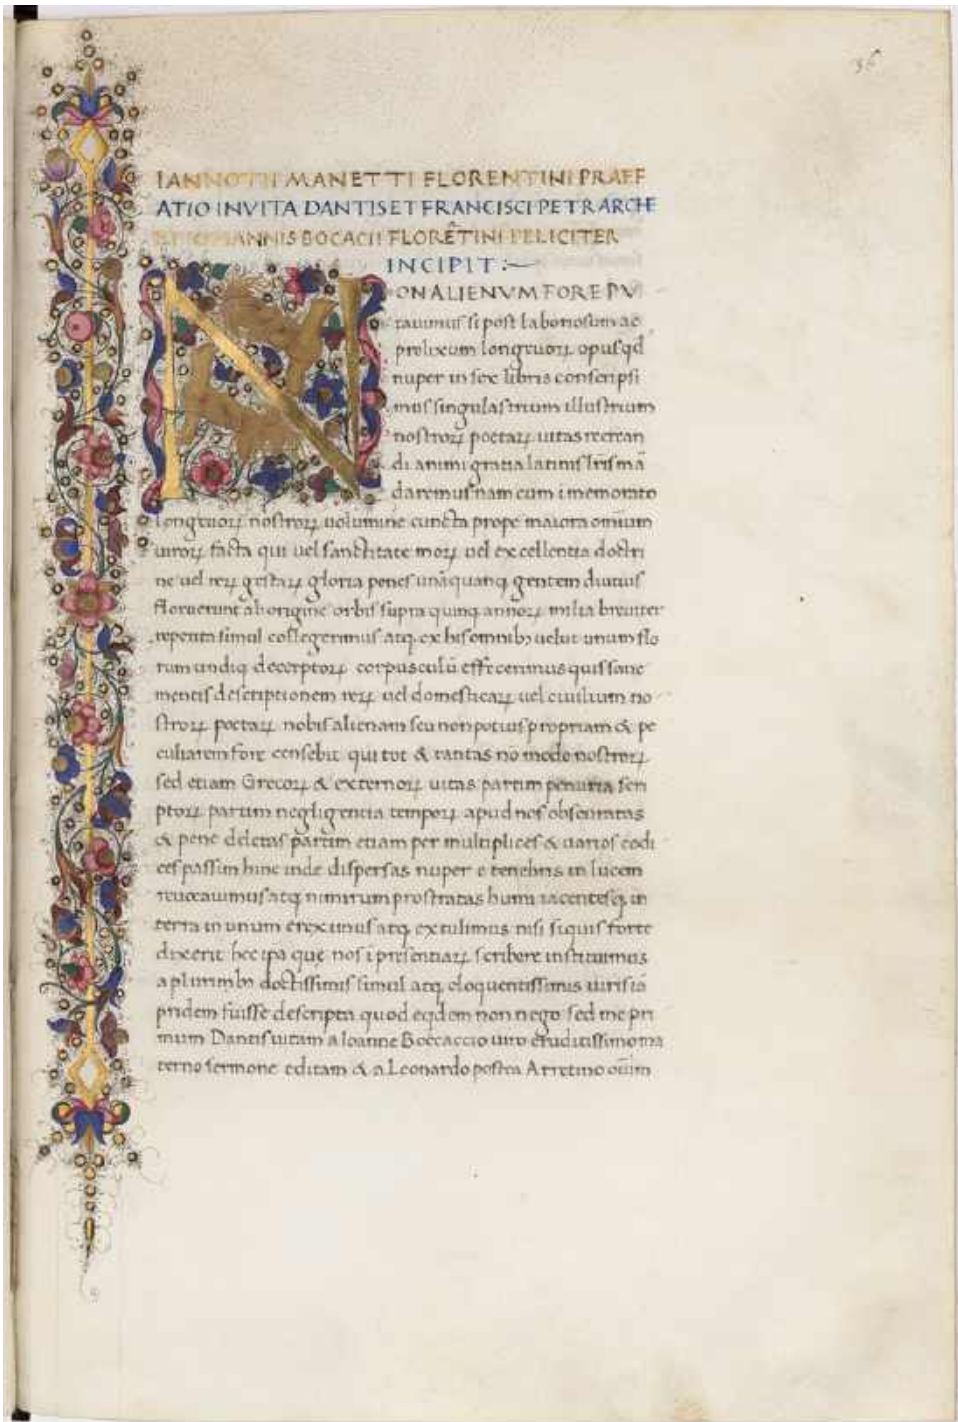 36
IANNOTII MANETTI FLORENTINI PRAEF
ATIO IN VITA DANTIS ET FRANCISCI PETRARCHE
ET IOHANNIS BOCACII FLORE͂TINI FELICITER
INCIPIT :~
NON ALIENVM FORE PV
tauimus si post laboriosum ac
prolixum longeuoꝝ opus qd
nuper in sex libris conscripsi
mus singulas trium illustrium
nostroꝝ poetaꝝ uitas recrean
di animi gratia latinis lr̃is mã
daremus nam cum i memorato
longeuoꝝ nostroꝝ uolumine cuncta prope maiora omnium
uiroꝝ facta qui uel sanctitate moꝝ uel excellentia doctri
ne uel reꝝ gestaꝝ gloria penes unãquanqꝫ gentem diutius
floruerunt ab origine orbis supra quinqꝫ annoꝝ milia breuiter
repetita simul collegerimus atqꝫ ex his omnibꝫ uelut unum flo
rum undiqꝫ decerptoꝝ corpusculũ effecerimus quis sane
mentis descriptionem reꝝ uel domesticaꝝ uel ciuilium no
stroꝝ poetaꝝ nobis alienam seu non potius propriam & pe
culiarem fore censebit qui tot & tantas nõ modo nostroꝝ
sed etiam Grecoꝝ & externoꝝ uitas partim penuria scri
ptoꝝ partim negligentia tempoꝝ apud nos obscuratas
& pene deletas partim etiam per multiplices & uarios codi
ces passim hinc inde dispersas nuper e tenebris in lucem
reuocauimus atqꝫ nimirum prostratas humi iacentesqꝫ in
terra in unum ereximus atqꝫ extulimus nisi siquis forte
dixerit hec ipã que nos i presentiaꝝ scribere instituimus
a plurimbꝫ doctissimis simul atqꝫ eloquentissimis uiris iã
pridem fuisse descripta quod eqdem non nego sed me pri
mum Dantis uitam a Ioanne Boccaccio uiro eruditissimo ma
terno sermone editam & a Leonardo postea Arretino